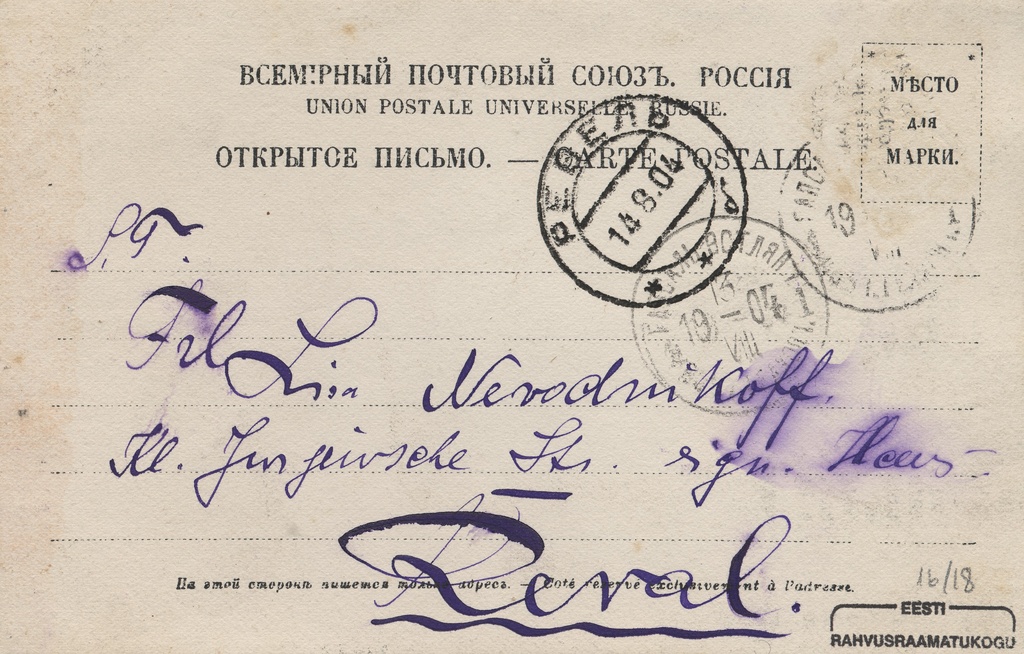 ВСЕМІРНЫЙ ПОЧТОВЫЙ СОЮЗЪ. РОССІЯ
UNION POSTALE UNIVERSELLE. RUSSIE.
ОТКРЫТОЕ ПИСЬМО. — CARTE POSTALE.
МѢСТО
ДЛЯ
МАРКИ.
РЕВЕЛЬ
14.8.04
13
19 — 04
VIII
1
19
VIII
S.T.
Frl Lisa Nevodnikoff.
Kl. Jurgewsche Str. eign. Haus
Reval.
На этой сторонѣ пишется только адресъ. — Coté réservé exclusivement à l'adresse.
16/18
EESTI
RAHVUSRAAMATUKOGU